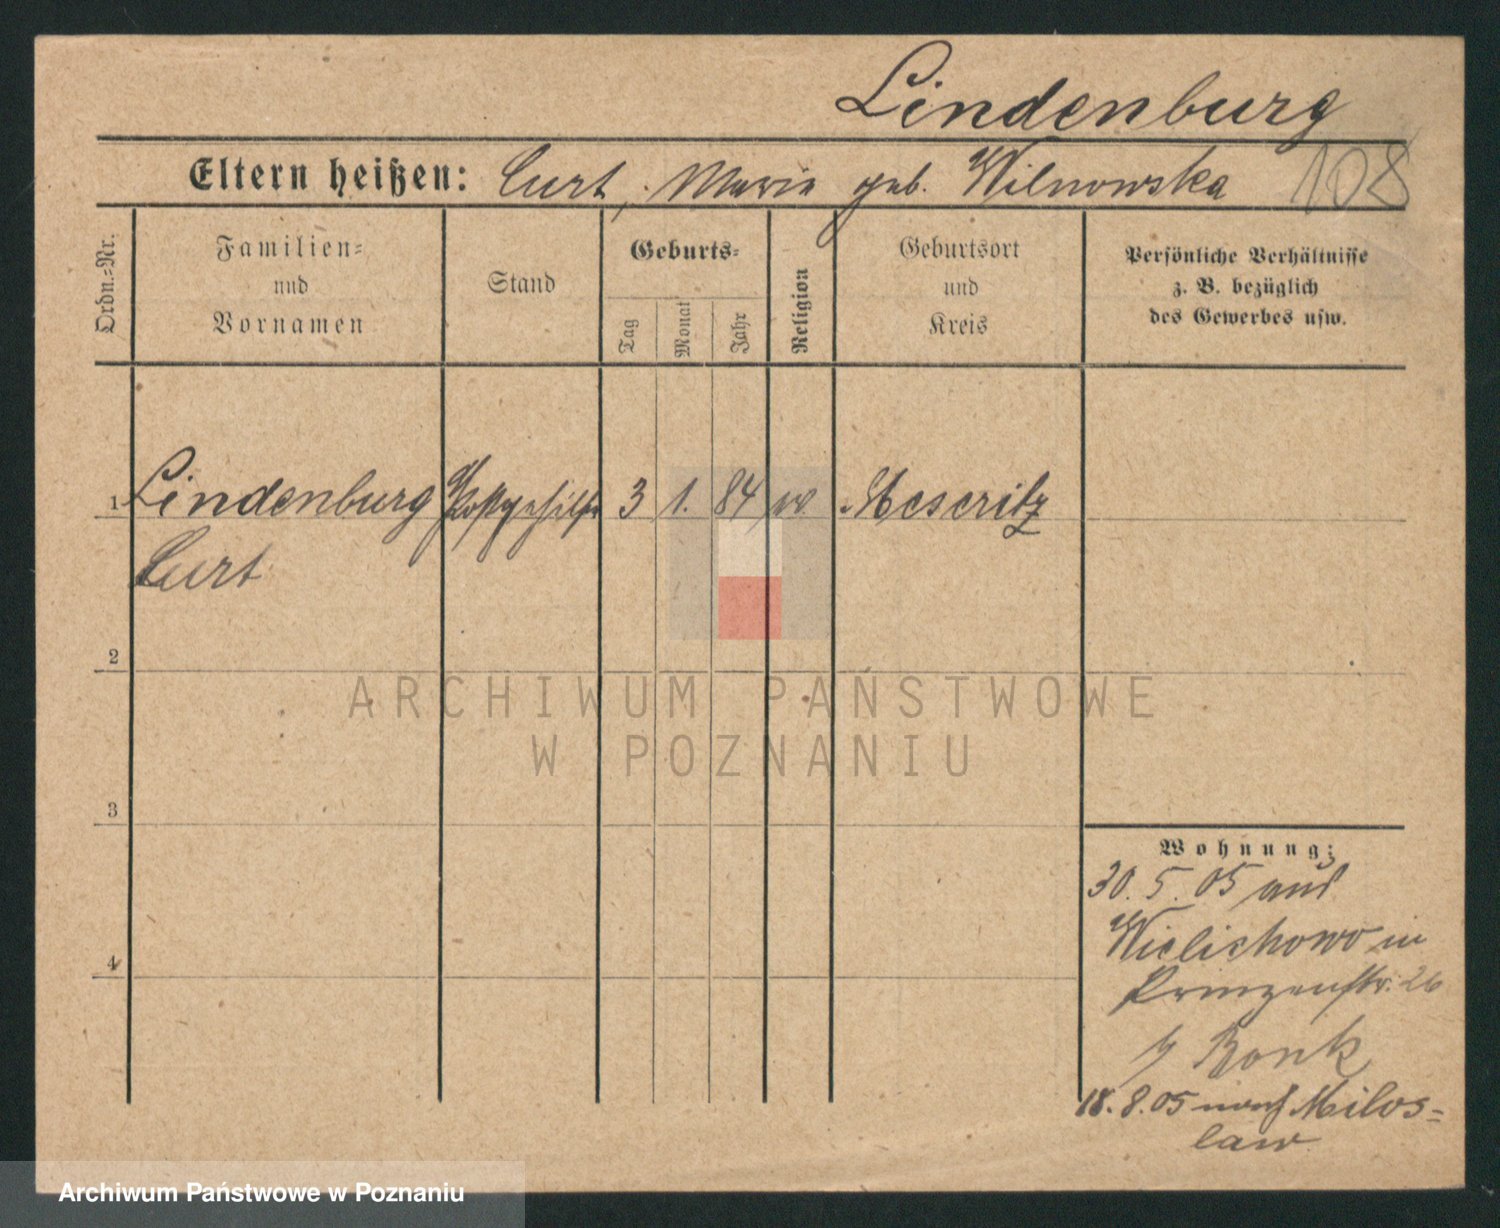 Lindenburg
Eltern heißen: Curt, Marie geb. Wilnowska 108
Ordn.=Nr.
Familien=
und
Vornamen
Stand
Geburts=
Tag
Monat
Jahr
Religion
Geburtsort
und
Kreis
Persönliche Verhältnisse
z. B. bezüglich
des Gewerbes usw.
1 Lindenburg Postgehilfe 3 1. 84 Meseritz
Curt
2
ARCHIWUM PAŃSTWOWE
W POZNANIU
3
Wohnung:
30. 5. 05 aus
Wielichowo in
4
Prinzenstr. 26
Bonk
18. 8. 05 nach Milos=
law
Archiwum Państwowe w Poznaniu